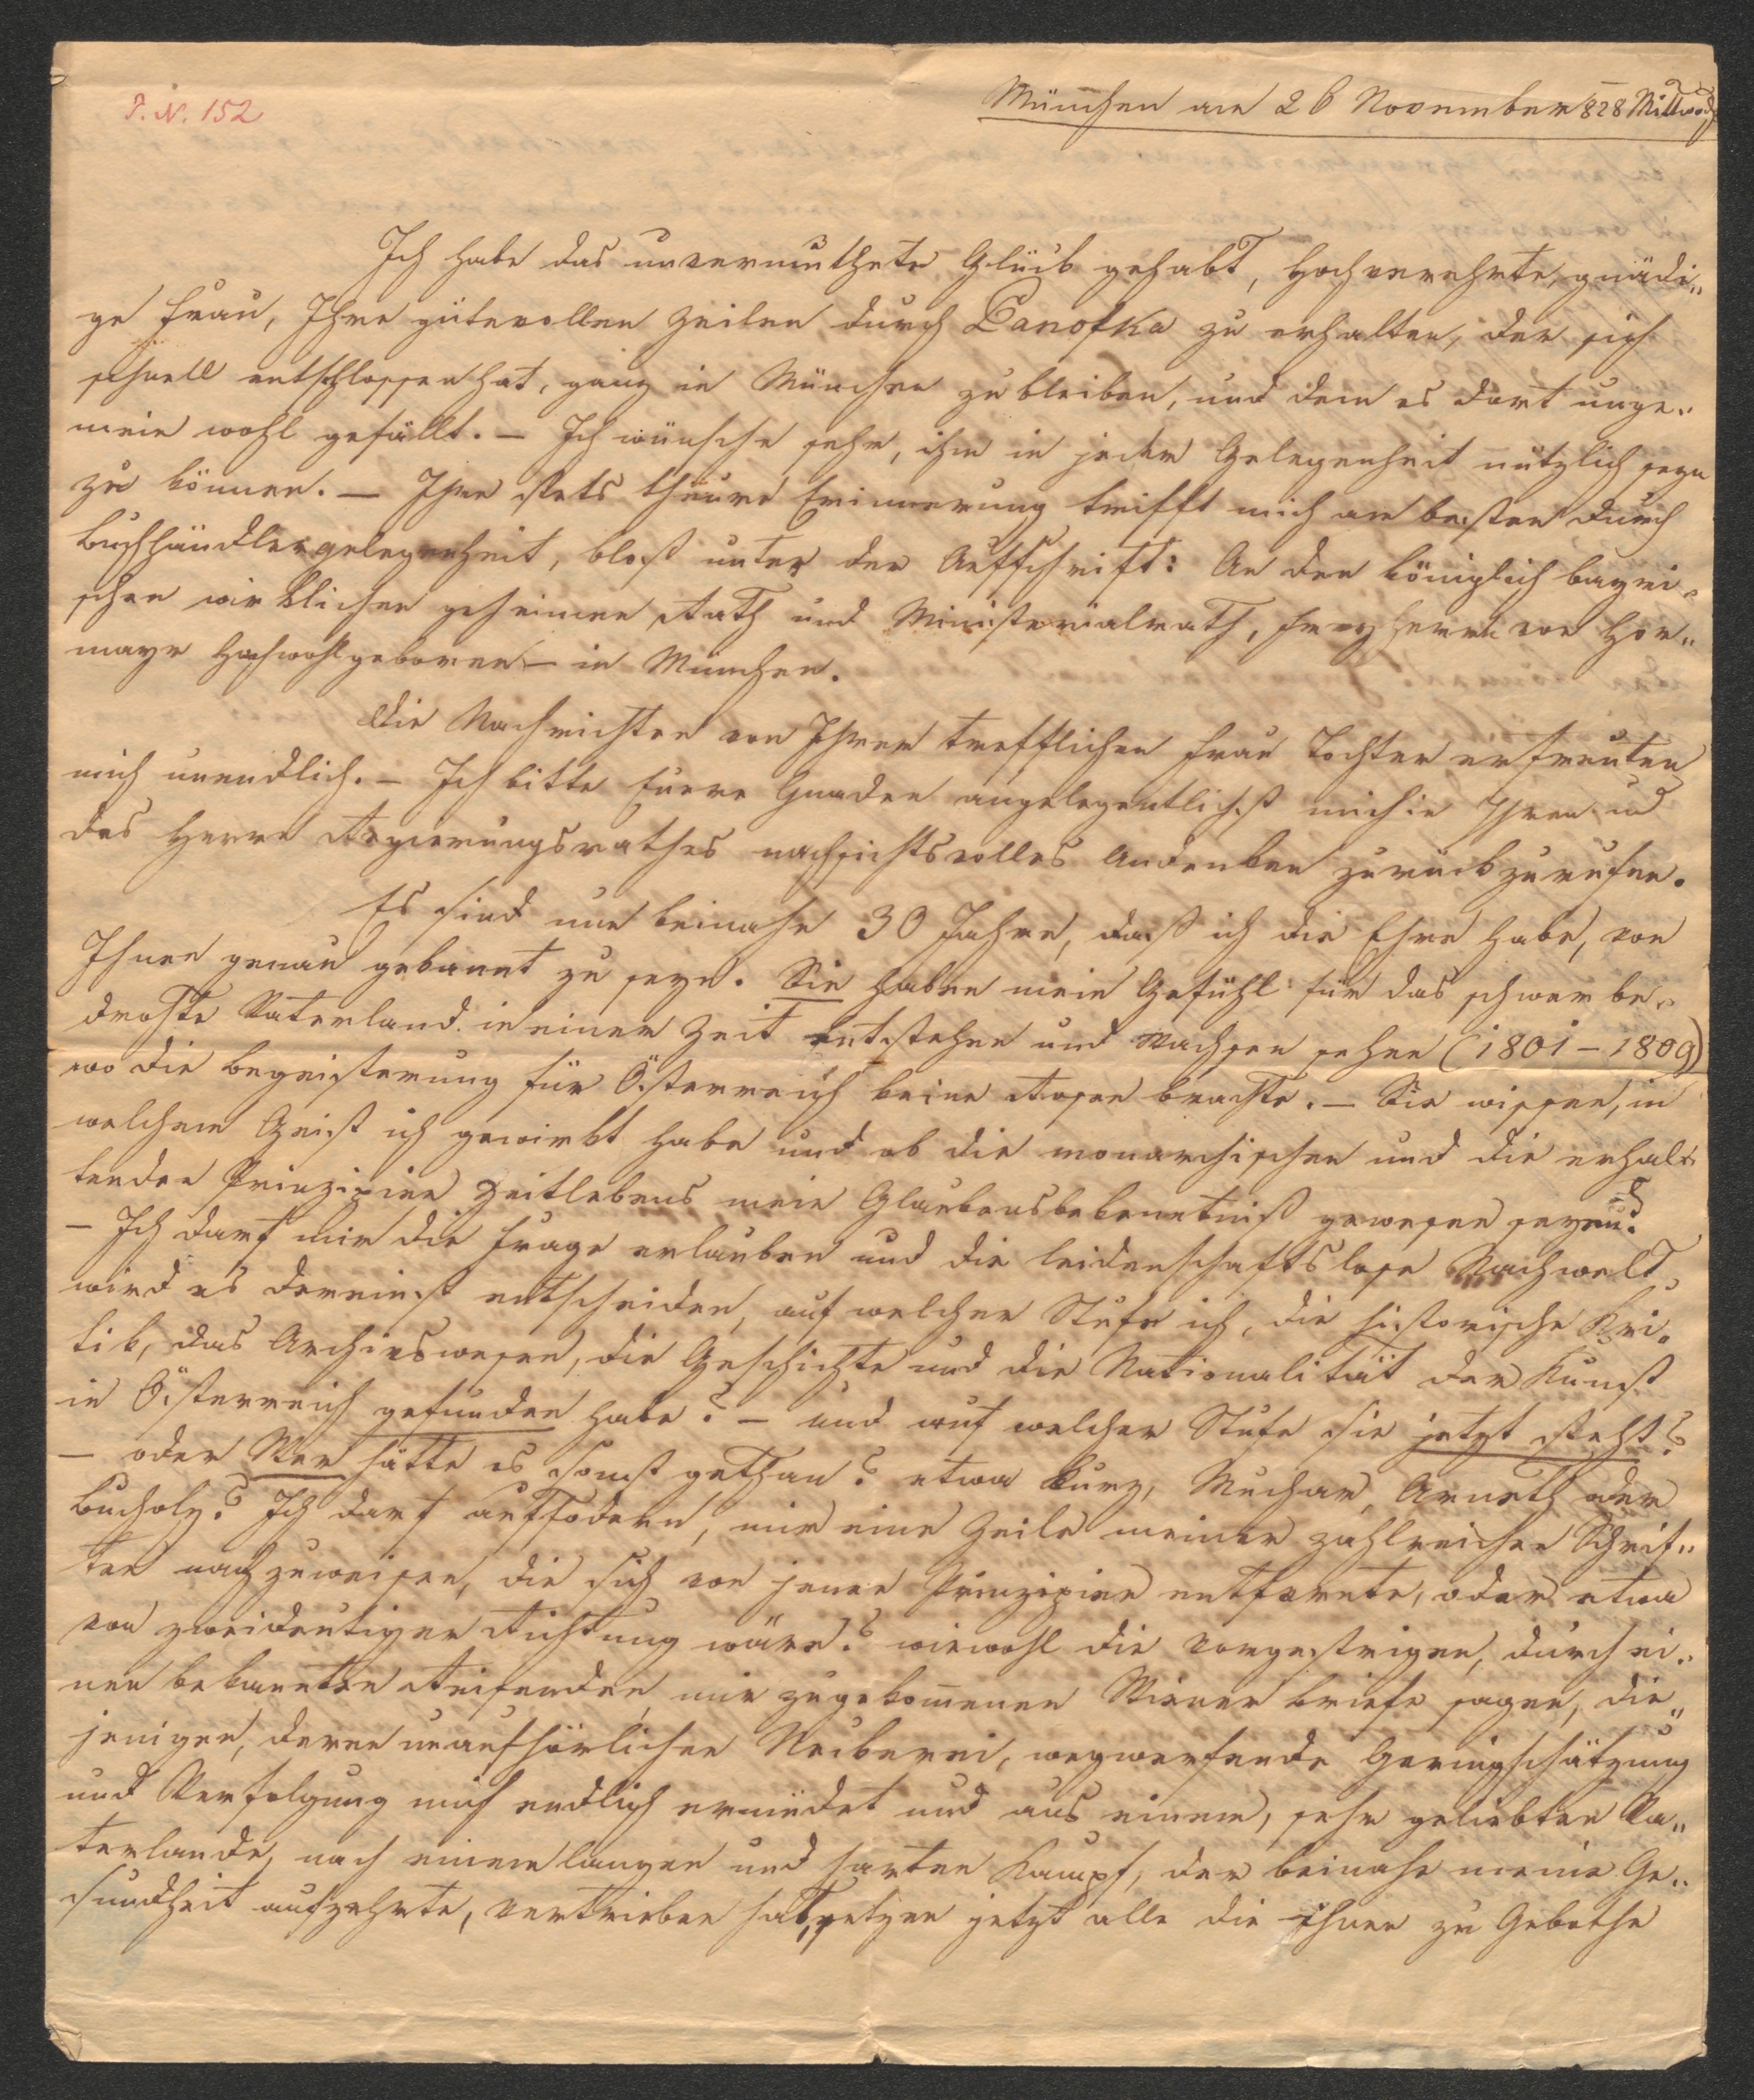 P. N. 152
München am 26 November 828 Mittwoch
Ich habe das unvermuthete Glück gehabt, Hochverehrte, gnädi„
ge Frau, Ihre gütevollen Zeilen durch Panofka zu erhalten, der sich
schnell entschlossen hat, ganz in München zu bleiben, und dem es dort unge„
mein wohl gefällt. – Ich wünsche sehr, ihm in jeder Gelegenheit nützlich seyn
zu können. – Ihre stets theure Erinnerung trifft mich am besten durch
Buchhändlergelegenheit, bloß unter der Aufschrift: An den königlich bayri„
schen wirklichen geheimen Rath und Ministerialrath, Freyherrn von Hor„
mayr Hochwohlgeboren – in München.
Die Nachrichten von Ihrer trefflichen Frau Tochter erfreuten
mich unendlich. – Ich bitte Euere Gnaden angelegentlichst mich in Ihren und
des Herrn Regierungsrathes nachsichtsvolles Andenken zurückzurufen.
Es sind nun beinahe 30 Jahre, daß ich die Ehre habe, von
Ihnen genau gekannt zu seyn. Sie haben mein Gefühl für das schwer be„
drohte Vaterland in einer Zeit entstehen und wachsen sehen (1801 – 1809)
wo die Begeisterung für Österreich keine Rosen brachte. – Sie wissen, in
welchem Geist ich gewirkt habe und ob die monarchischen und die erhal„
tenden Prinzipien Zeitlebens mein Glaubensbekenntniß gewesen seyen?
– Ich darf mir die Frage erlauben und die leidenschaftslose Nachwelt
wird es dereinst entscheiden, auf welcher Stufe ich, die historische Kri„
tik, das Archivswesen, die Geschichte und die Nationalität der Kunst
in Österreich gefunden habe? – und auf welcher Stufe sie jetzt steht?
– oder Wer hätte es sonst gethan? etwa Kurz, Muchar, Arneth oder
Bucholz? Ich darf auffodern, mir eine Zeile meiner zahlreichen Schrif„
ten nachzuweisen, die sich von jenen Prinzipien entfernte, oder etwa
von zweideutiger Richtung wäre? wiewohl die vorgestrigen, durch ei„
nen bekannten Reisenden mir zugekommenen Wiener Briefe sagen, die„
jenigen, deren unaufhörlichen Neckerei, wegwerfende Geringschätzung
und Verfolgung mich endlich ermüdet und aus einem, sehr geliebten Va„
terlande, nach einem langen und harten Kampf, der beinahe meine Ge„
sundheit aufzehrte, vertrieben hat, setzen jetzt alle die ihnen zu Gebothe